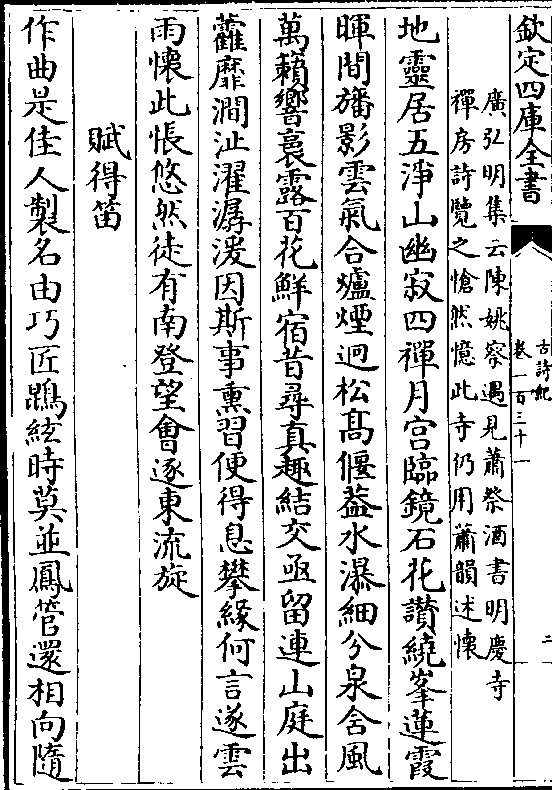 欽定四庫全書
古詩紀
卷一百三十一
二
廣弘明集云陳姚察遇見蕭祭酒書明慶寺
禪房詩覽之愴然憶此寺仍用蕭韻述懷
地靈居五淨山幽寂四禪月宫臨鏡石花讃繞峯蓮霞
暉間旛影雲氣合爐煙迥松髙偃葢水瀑細分泉含風
萬籟響裛露百花鮮宿昔尋真趣結交亟留連山庭出
藿靡澗沚濯潺湲因斯事熏習便得息攀緣何言遂雲
雨懷此悵悠然徒有南登望會逐東流旋
賦得笛
作曲是佳人製名由巧匠鵾絃時莫並鳳管還相向隨